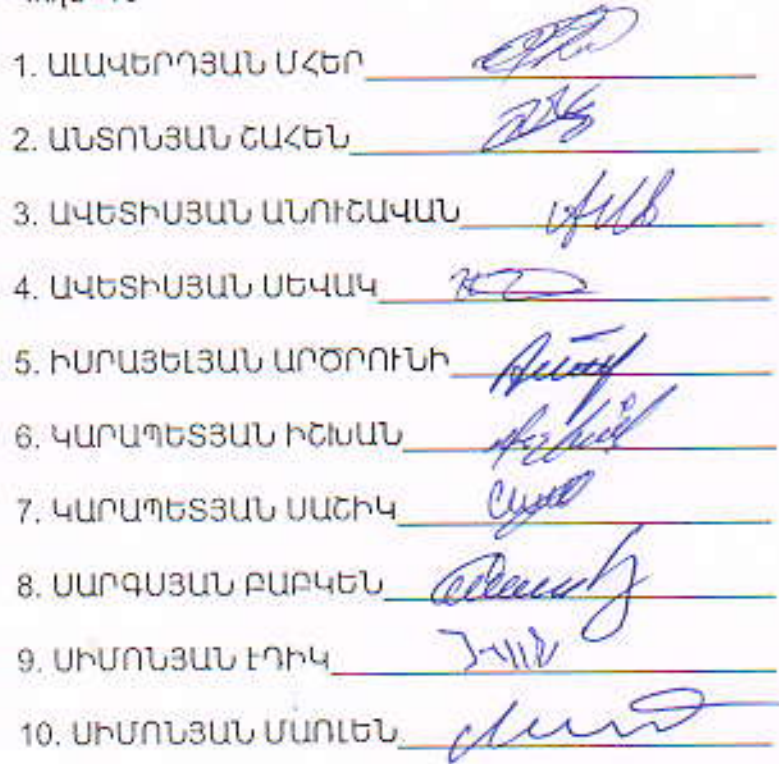 1. ԱԼԱՎԵՐԴՅԱՆ ՄՀԵՐ
2. ԱՆՏՈՆՅԱՆ ՇԱՀԵՆ
3. ԱՎԵՏԻՍՅԱՆ ԱՆՈՒՇԱՎԱՆ
4. ԱՎԵՏԻՍՅԱՆ ՍԵՎԱԿ
5. ԻՍՐԱՅԵԼՅԱՆ ԱՐԾՐՈՒՆԻ
6. ԿԱՐԱՊԵՏՅԱՆ ԻՇԽԱՆ
7. ԿԱՐԱՊԵՏՅԱՆ ՍԱՇԻԿ
8. ՍԱՐԳՍՅԱՆ ԲԱԲԿԵՆ
9. ՍԻՄՈՆՅԱՆ ԷԴԻԿ
10. ՍԻՄՈՆՅԱՆ ՄԱՌԼԵՆ